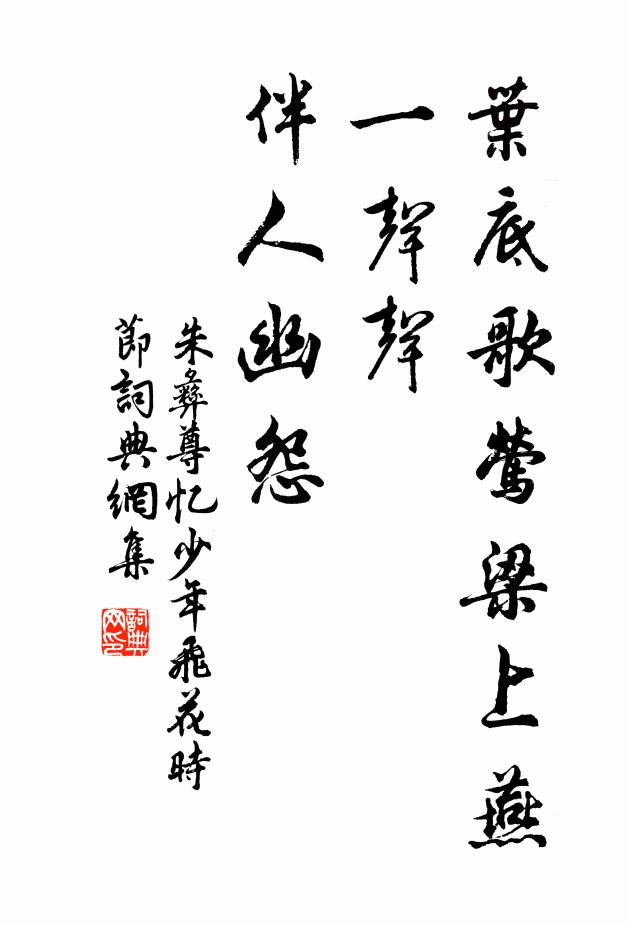 葉底歌鶯梁上燕
一聲聲
伴人幽怨
朱彝尊忆少年飛花時
節詞典網集
詞典
网印